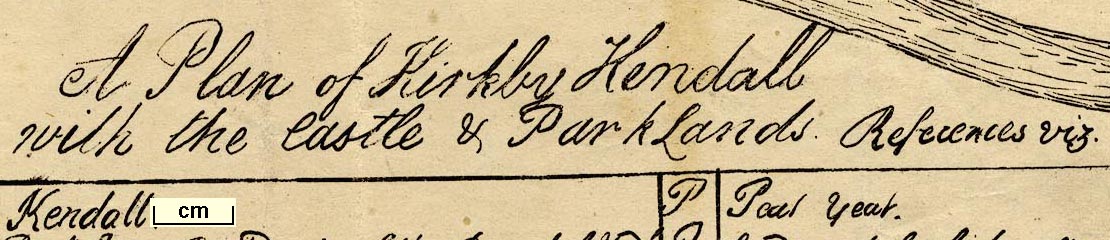 A Plan of Kirkby Kendall
with the Castle & Park Lands. References viz.
Kendall. cm P Peat Yeat.